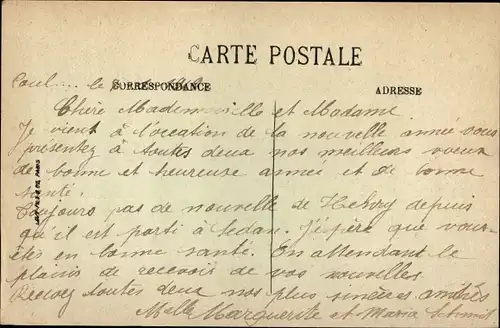 CARTE POSTALE
CORRESPONDANCE
ADRESSE
le
Chère Mademoiselle et Madame.
Je vient à l'occation de la nouvelle année vous
présentez à toutes deux nos meilleurs vœux
de bonne et heureuse année et de bonne
santé.
Toujours pas de nouvelle de Henry depuis
qu'il est parti à Sedan. J'éspère que vous
êtes en bonne santé. En attendant le
plaisir de recevoir de vos nouvelles.
Recevez toutes deux nos plus sincères amitiés
Melle Marguerite et Maria Schmit